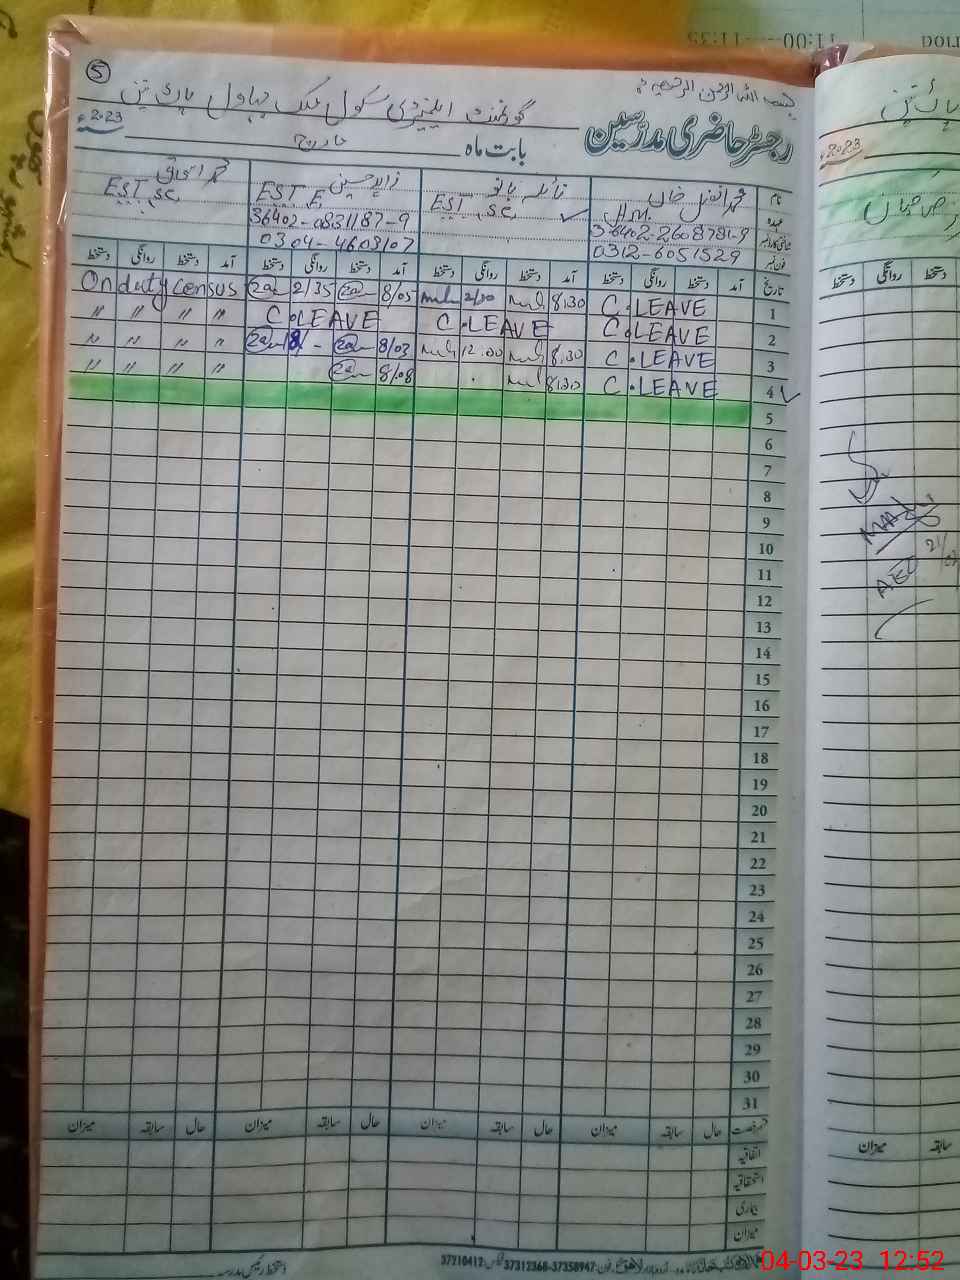 11:00----11:35
5
بسم اللہ الرحمن الرحیم
گورنمنٹ ایلیمنٹری سکول ملک بہاول پاک پتن
رجسٹر حاضری مدرسین
بابت ماہ مارچ 2023ء
نام محمد افضل خان نائلہ بانو زاہد حسین محمد اسحاق
عہدہ H.M. EST SC. EST E. EST SC.
36402-2608781-9 36402-0831187-9
فون نمبر 0312-6051529 0304-4603107
تاریخ آمد دستخط روانگی دستخط آمد دستخط روانگی دستخط آمد دستخط روانگی دستخط آمد دستخط روانگی دستخط
1 C.LEAVE 8:30 2/30 8/05 2/35 On duty census
2 C.LEAVE C.LEAVE C.LEAVE " " " "
3 C.LEAVE 8:30 12:00 8/03 " " " "
4 C.LEAVE 8:30 8/08 " " " "
5
6
7
8
9
10
11
12
13
14
15
16
17
18
19
20
21
22
23
24
25
26
27
28
29
30
31
رخصت حال سابقہ میزان حال سابقہ میزان حال سابقہ میزان حال سابقہ میزان
اتفاقیہ
استحقاقیہ
بیماری
میزان
دستخط رئیس مدرسہ
اردو بازار لاہور فون: 37358947-37312368 فیکس: 37210412
2023ء
روانگی دستخط
AEO
سابقہ میزان
04-03-23 12:52